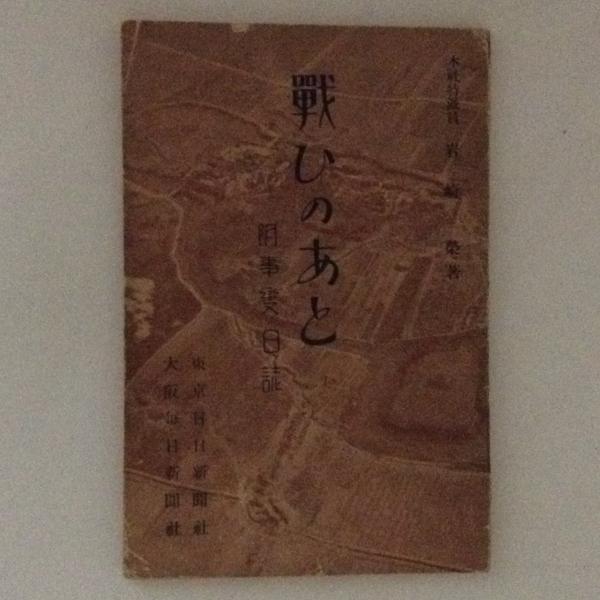 本社特派員 岩崎 榮著
戰ひのあと
事變日誌
東京日日新聞社
大阪每日新聞社